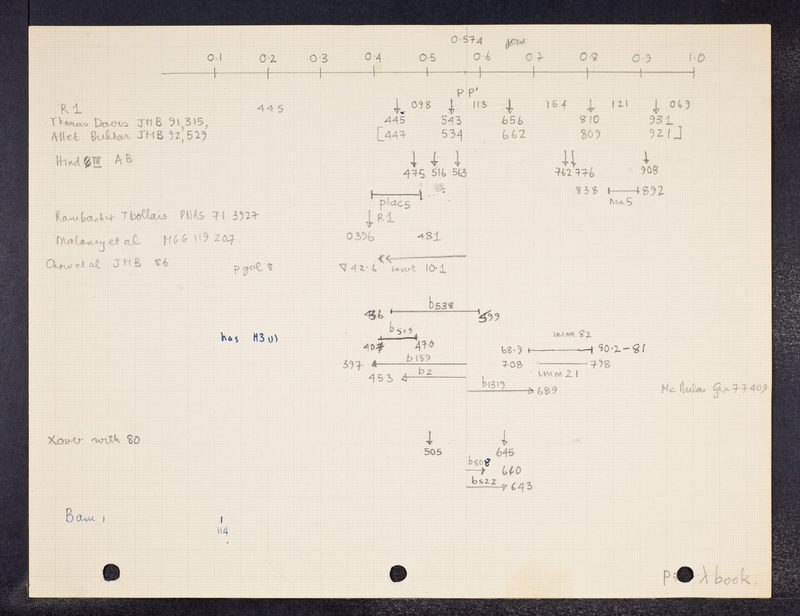 0.574
0.1 0.2 0.3 0.4 0.5 0.6 0.7 0.8 0.9 1.0
P P'
R1 445 098 113 154 121 069
Thomas Davis JMB 91,315, 445 543 656 810 931
Allet Bukhari JMB 92,529 [447 534 662 809 921]
Hind III AB
475 516 563 762 776 908
838 892
plac5 Nin5
R1
Rambach & Tbollais PNAS 71 3927
Malaney et al MGG 119 207. 0396 481
Chow et al JMB 86 pgal 8 ∇ 42.6 inut 10.1
b538
436 599
b519 imm 82
has H3(1) 407 470 68.9 80.2-81
397 b189 708 798
453 b2 imm21
b1319 689 77 409
Xover with 80
505 645
b508 640
b522 643
Bam 1
114
λ book.